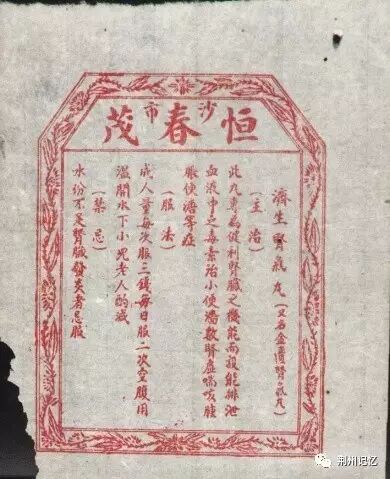 沙市
恒春茂
濟生腎氣丸（又名金匱腎氣丸）
（主治）
此丸專為健利腎臟之機能而設能排泄
血液中之毒素治小便濇數腎虛喘咳腫
脹便溏等症
（服法）
成人量每次服三錢每日服二次空腹用
溫開水下小児老人酌减
（禁忌）
水份不足腎臟發炎者忌服
荆州记忆